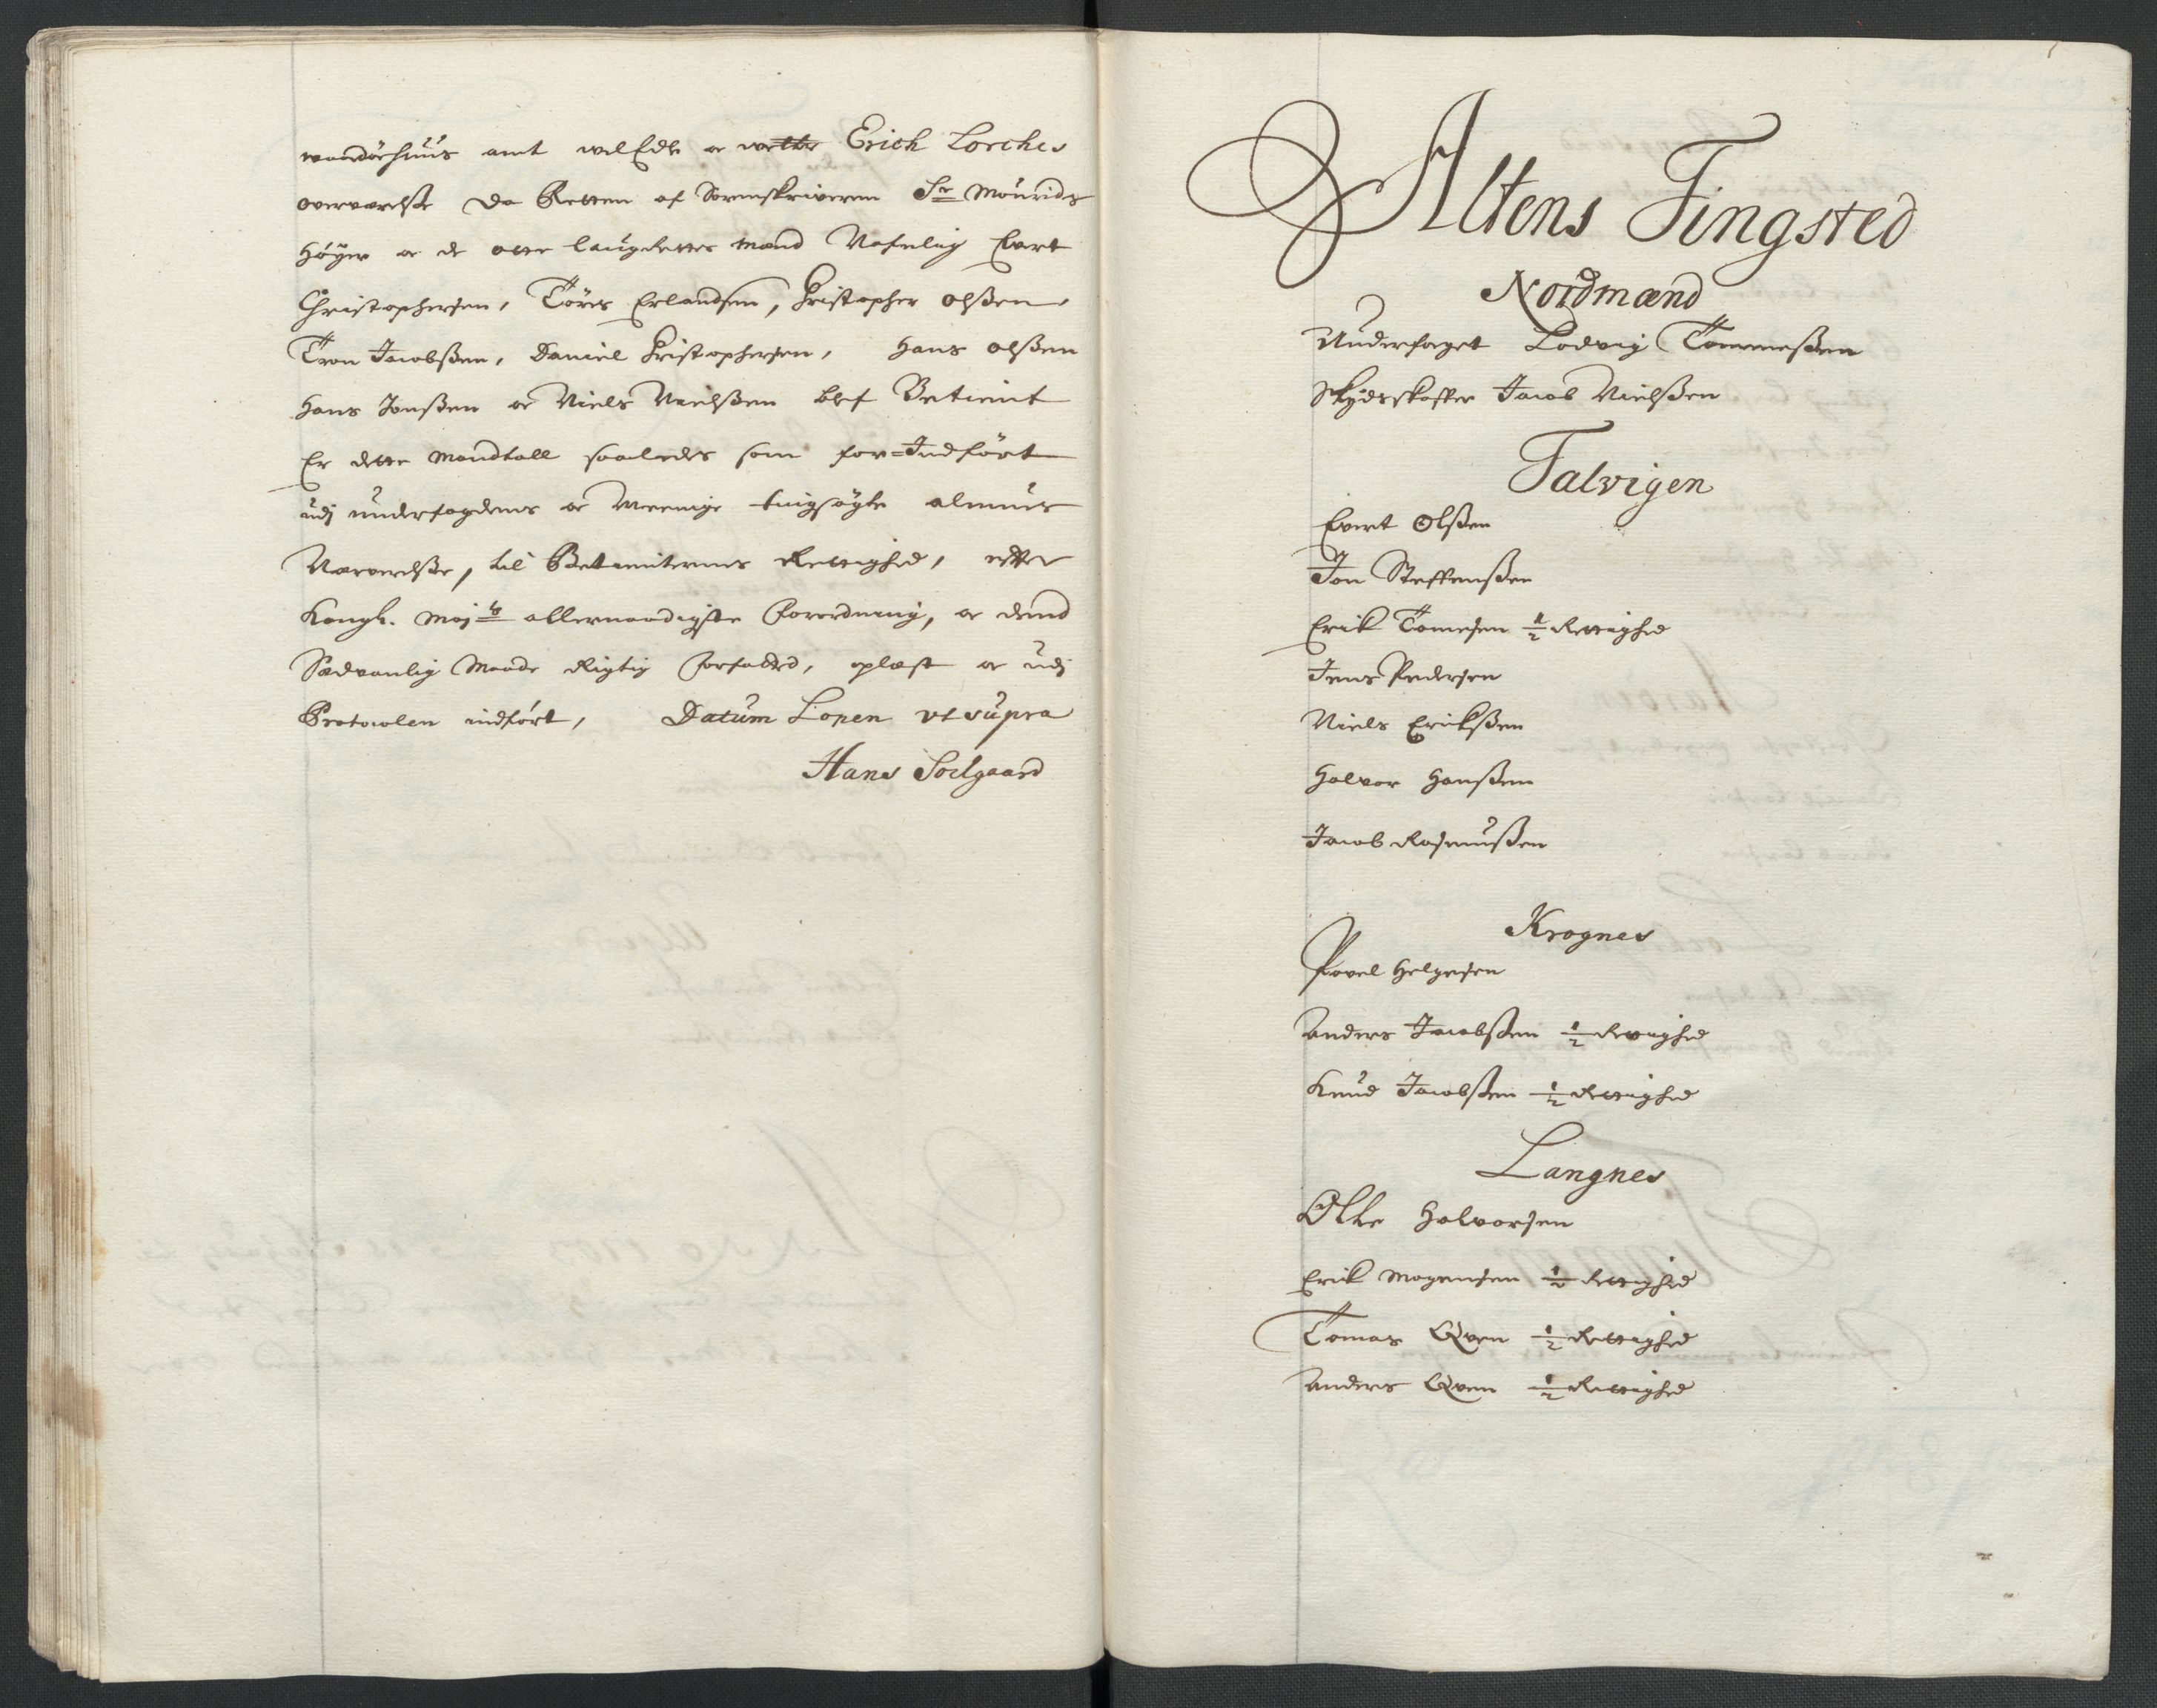 wardöehuus amt welEdle oc wette Erich Lorches
overværelse da Retten af Sorenskriveren Sr Mourids
Höyer oc de otte laugrettes mænd Nafnlig Evert
Christophersen, Törres Erlandsen, Christopher Olßen,
Tron Jacobßen, Daniel Christophersen, Hans Olßen
Hans Jonßen oc Niels Nielßen blef Betient
Er dette Mandtall saaledes som for-Indfört
udj underfogdens oc Meenige tingsögte almues
Nærverelße, til Betienternes Rettighed, efter
Kongl. Maj ts allernaadigste Forordning, oc dend
Sædvanlig Maade Rigtig forfatted, oplæst oc udj
Protocolen indfört, Datum Loppen ut supra
Hans Soelgaard
Altens Tingsted
Nordmænd
Underfoget Lodvig Tommeßen
Skydsskaffer Jacob Nielßen
Talvigen
Evert Olßen
Jon Steffenßen
Erik Tomesen 1/2 Rettighed
Jens Pedersen
Niels Erickßen
Halvor Hanßen
Jacob Rasmußen
Krognes
Povel Helgesen
Anders Jacobßen 1/2 Rettighed
Knud Jacobßen 1/2 Rettighed
Langnes
Olle Halvorsen
Erik Mogensen 1/2 Rettighed
Tomas Qven 1/2 Rettighed
Anders Qven 1/2 Rettighed